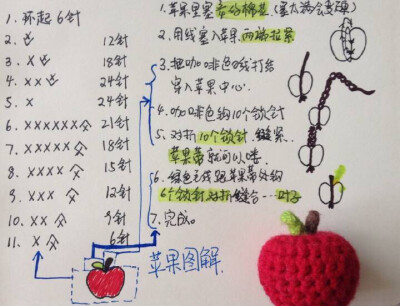 1. 环起6针
2. 12针
3. x 18针
4. xx 24针
5. x 24针
6. xxxxxx 21针
7. xxxxx 18针
8. xxxx 15针
9. xxx 12针
10. xx 9针
11. x 6针
1. 苹果里塞
2. 用线塞入苹果两端拉紧
3. 把咖啡色线打结
穿入苹果中心.
4. 咖啡色钩10个锁针
5. 对折10个锁针 缝紧.
6. 绿色毛线
6个锁针对折缝合
7. 完成。
苹果图解.